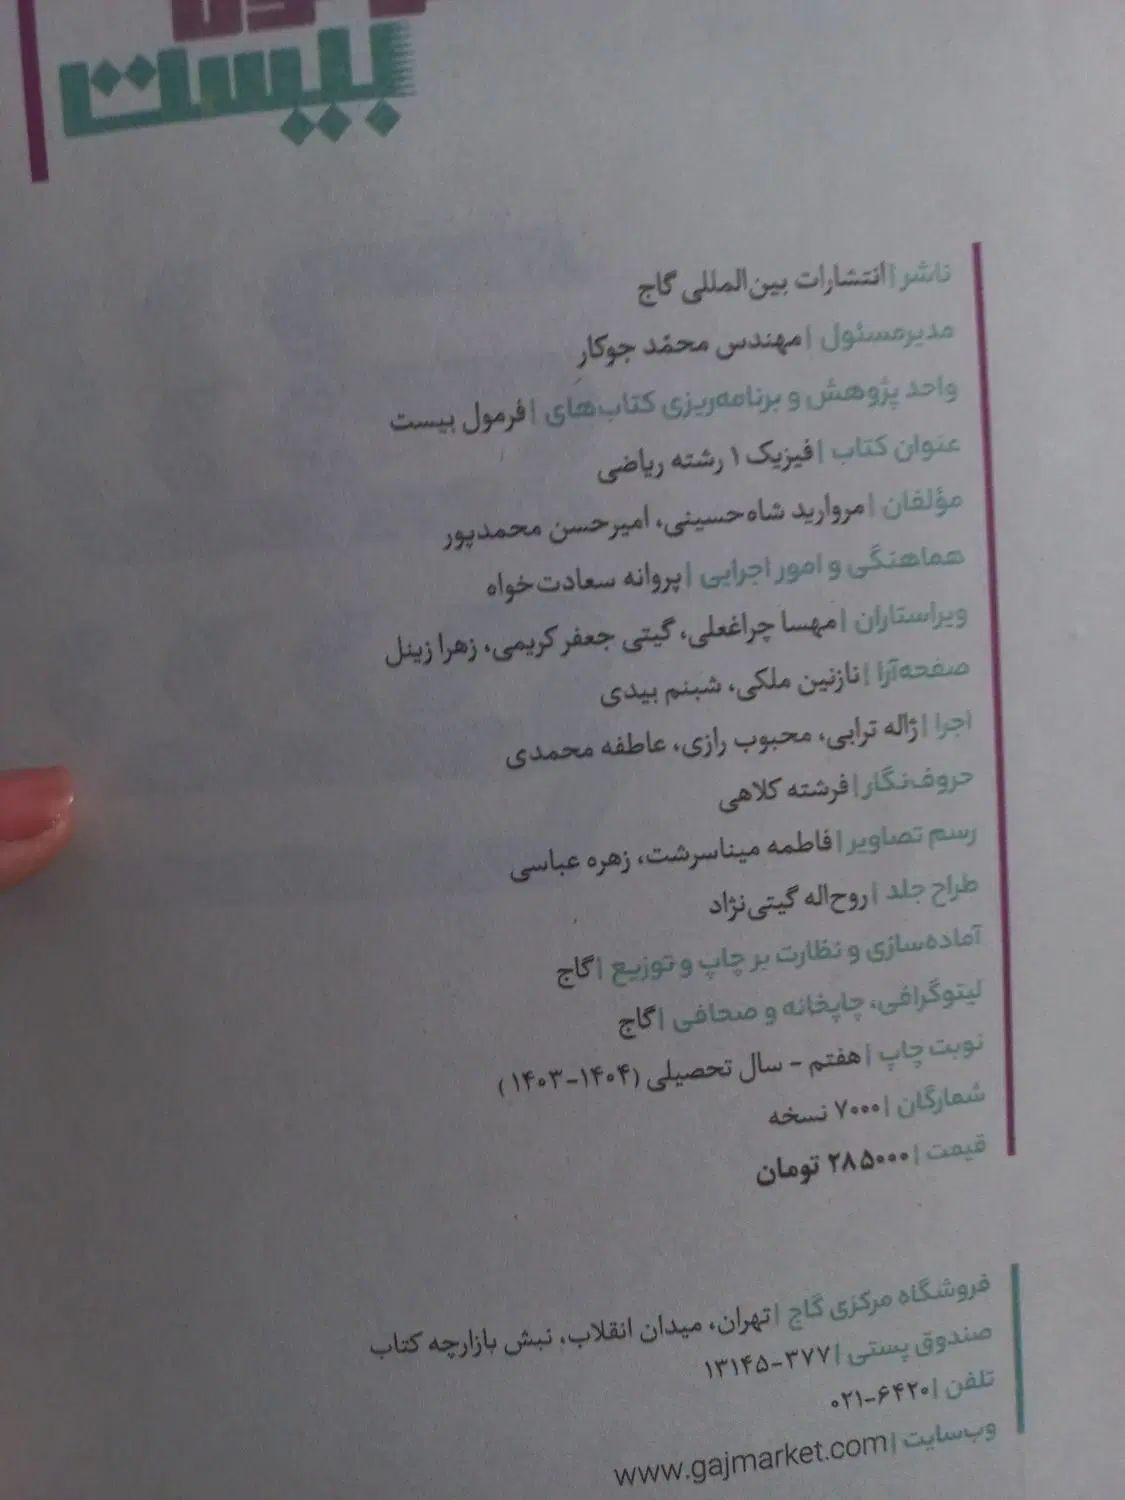 بیست
ناشر | انتشارات بین‌المللی گاج
مدیرمسئول | مهندس محمّد جوکار
واحد پژوهش و برنامه‌ریزی کتاب‌های | فرمول بیست
عنوان کتاب | فیزیک ۱ رشته ریاضی
مؤلفان | مروارید شاه‌حسینی، امیرحسن محمدپور
هماهنگی و امور اجرایی | پروانه سعادت‌خواه
ویراستاران | مهسا چراغعلی، گیتی جعفر کریمی، زهرا زینل
صفحه‌آرا | نازنین ملکی، شبنم بیدی
اجرا | ژاله ترابی، محبوب رازی، عاطفه محمدی
حروف‌نگار | فرشته کلاهی
رسم تصاویر | فاطمه میناسرشت، زهره عباسی
طراح جلد | روح‌اله گیتی‌نژاد
آماده‌سازی و نظارت بر چاپ و توزیع | گاج
لیتوگرافی، چاپخانه و صحافی | گاج
نوبت چاپ | هفتم - سال تحصیلی (۱۴۰۴-۱۴۰۳)
شمارگان | ۷۰۰۰ نسخه
قیمت | ۲۸۵۰۰۰ تومان
فروشگاه مرکزی گاج | تهران، میدان انقلاب، نبش بازارچه کتاب
صندوق پستی | ۳۷۷-۱۳۱۴۵
تلفن | ۶۴۲۰-۰۲۱
وب‌سایت | www.gajmarket.com